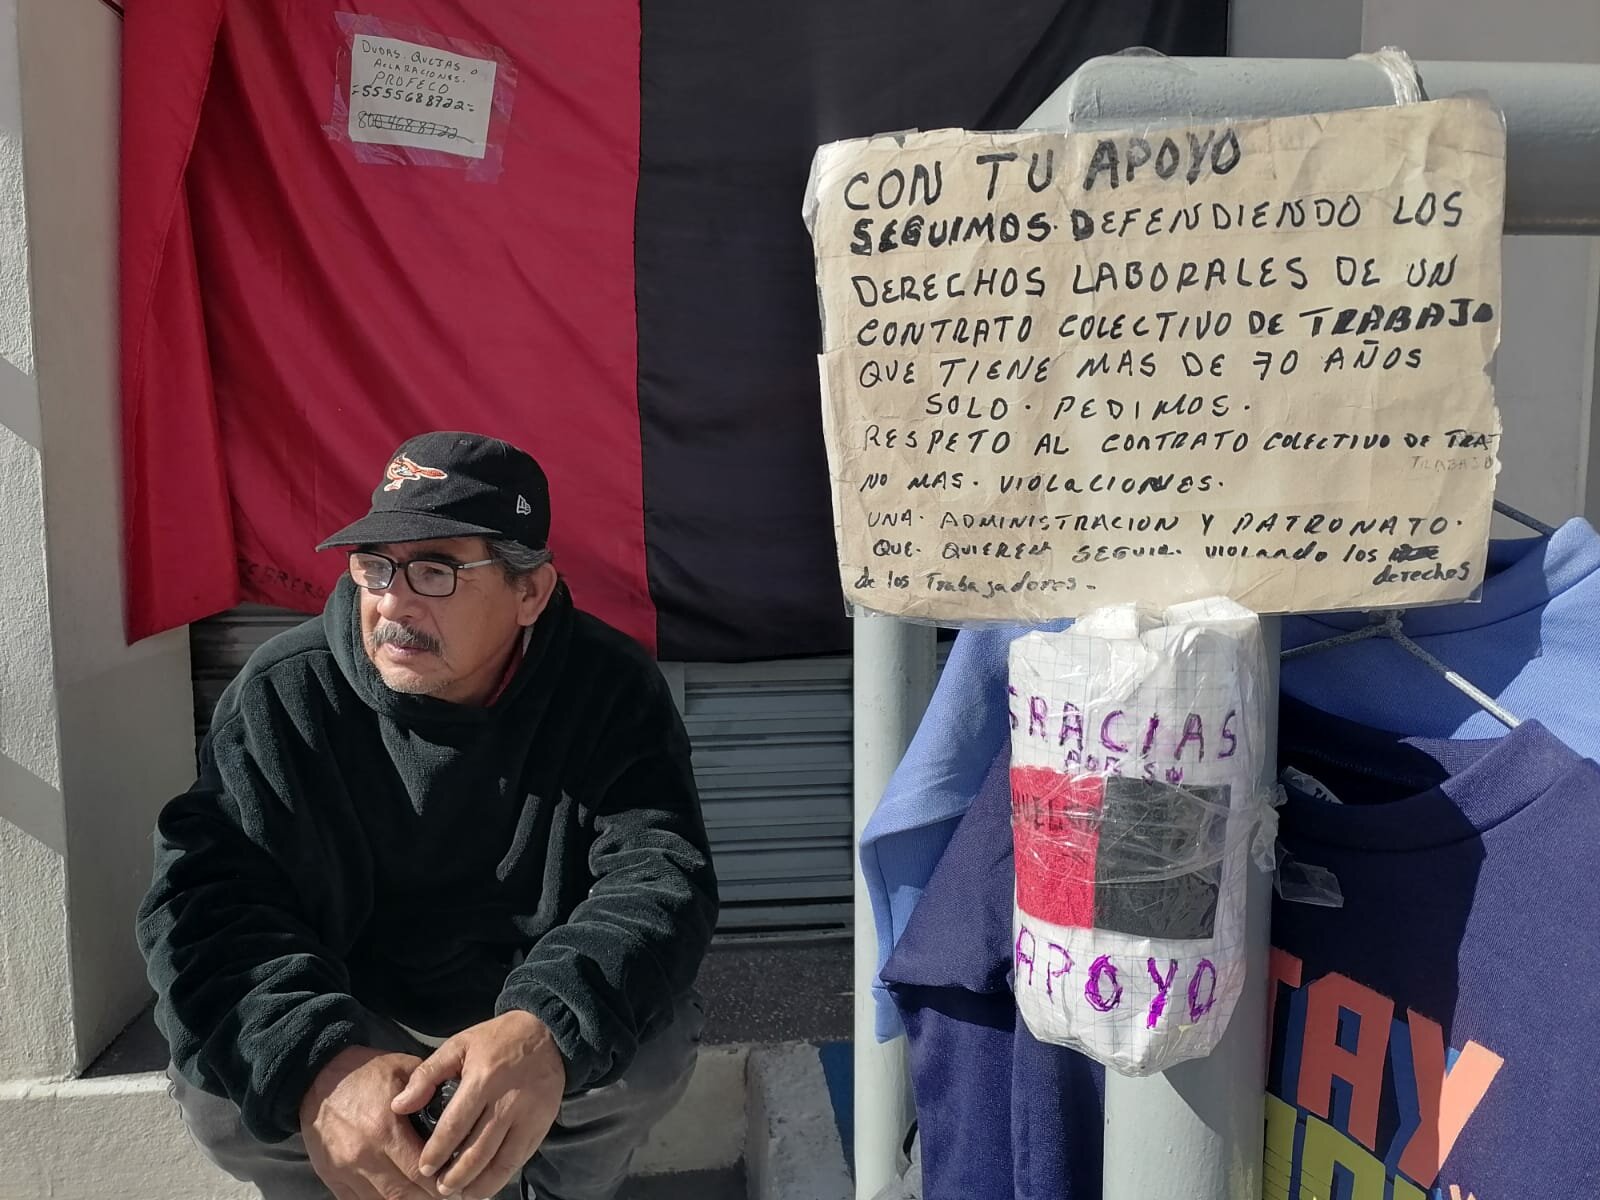 DUDAS. QUEJAS O
ACLARACIONES.
PROFECO
=5555688722=
8004688722
CON TU APOYO
SEGUIMOS. DEFENDIENDO LOS
DERECHOS LABORALES DE UN
CONTRATO COLECTIVO DE TRABAJO
QUE TIENE MAS DE 70 AÑOS
SOLO. PEDIMOS.
RESPETO AL CONTRATO COLECTIVO DE TRA
TRABAJO
NO MAS. VIOLACIONES.
UNA. ADMINISTRACION Y PATRONATO.
QUE. QUIEREN SEGUIR. VIOLANDO los
de los Trabajadores. derechos
GRACIAS
POR SU
HUELGA
APOYO
TAY